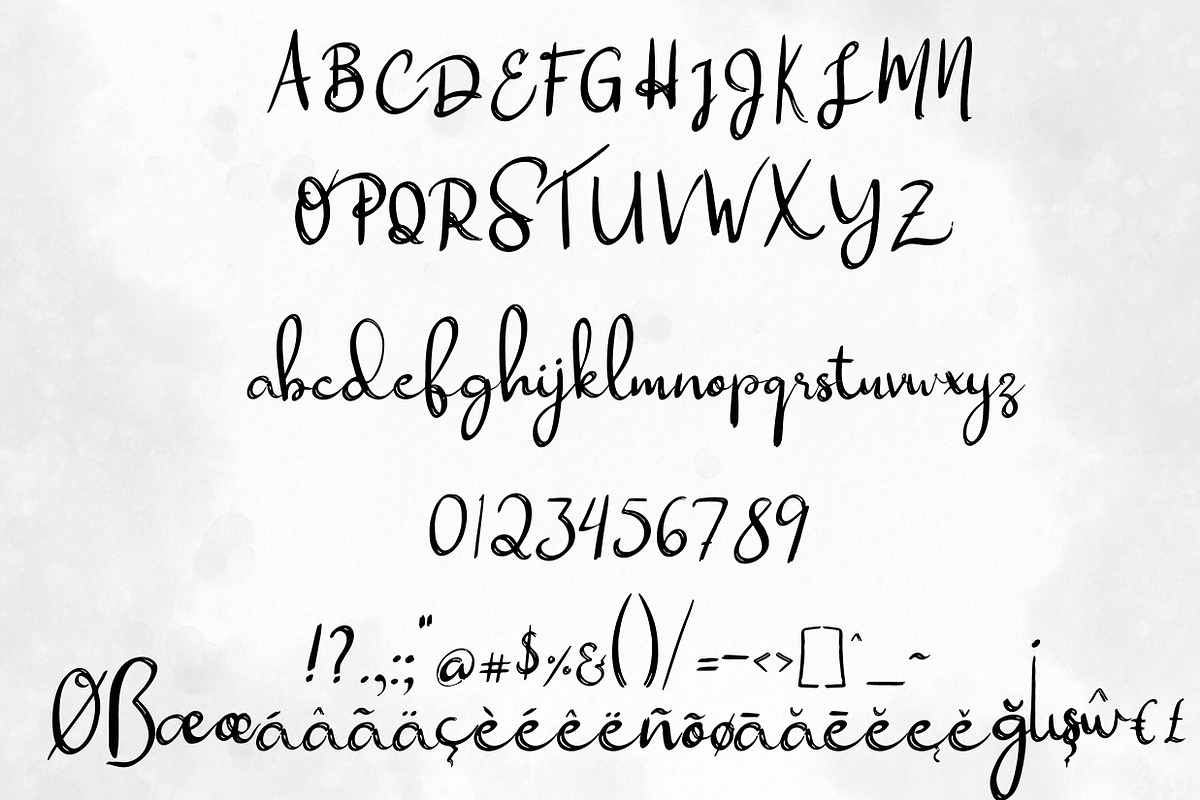 ABCDEFGHIJKLMN
OPQRSTUVWXYZ
abcdefghijklmnopqrstuvwxyz
0123456789
!?.,:;"@#$%&()/=-<>[]^_~
Øßæœáâãäçèéêëñõøāăēĕęěğıİşŵ€£